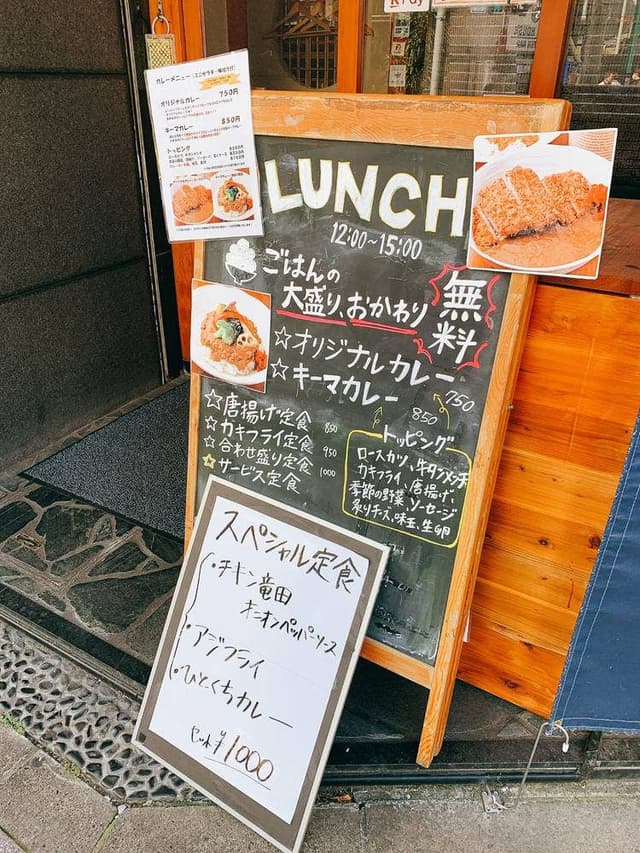 カレーメニュー
オリジナルカレー 750円
キーマカレー 850円
トッピング
LUNCH
12:00~15:00
ごはんの
大盛り、おかわり
無料
☆オリジナルカレー 750
☆キーマカレー 850
☆唐揚げ定食 850
☆カキフライ定食 950
☆合わせ盛り定食 1000
☆サービス定食
トッピング
ロースカツ、牛タンメンチ
カキフライ、唐揚げ
季節の野菜、ソーセージ
炙りチーズ、味玉、生卵
スペシャル定食
・チキン竜田
オニオンペッパーソース
・アジフライ
・ひとくちカレー
セット¥1000